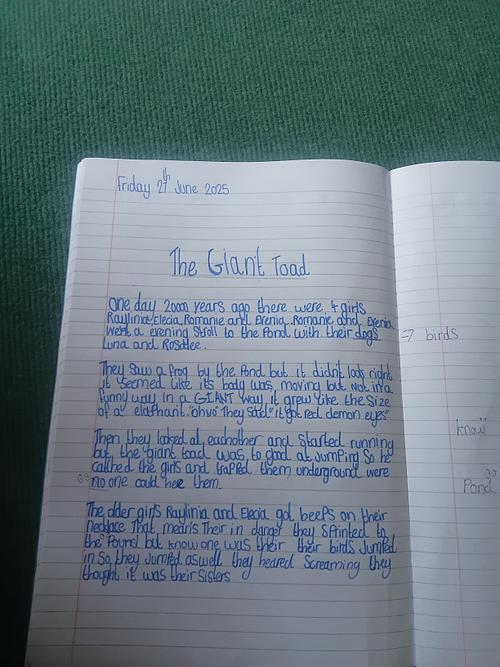 Friday 27th June 2025
The Giant Toad
One day 20000 years ago there were, 4 girls
Raylinia, Elecia, Romanie and Erenia. Romanie and Erenia
went a evening stroll to the Pond with their dogs
Luna and Rosalee.
They saw a frog by the Pond but it didn't look right
it seemed like its body was moving but not in a
funny way in a GIANT way, it grew like the size
of a elaphant. "ohno" They said "it got red demon eyes"
Then they looked at eachother and started running
but the giant toad was to good at jumping so he
catched the girls and traped them underground were
no one could hee them.
The older girls Raylinia and Elecia got beeps on their
necklace That means Their in danger they sprinted to
the Pound but know one was their their birds Jumped
in So they Jumped aswell they heared screaming they
thought it was their sisters
7 birds
know
go
Pond